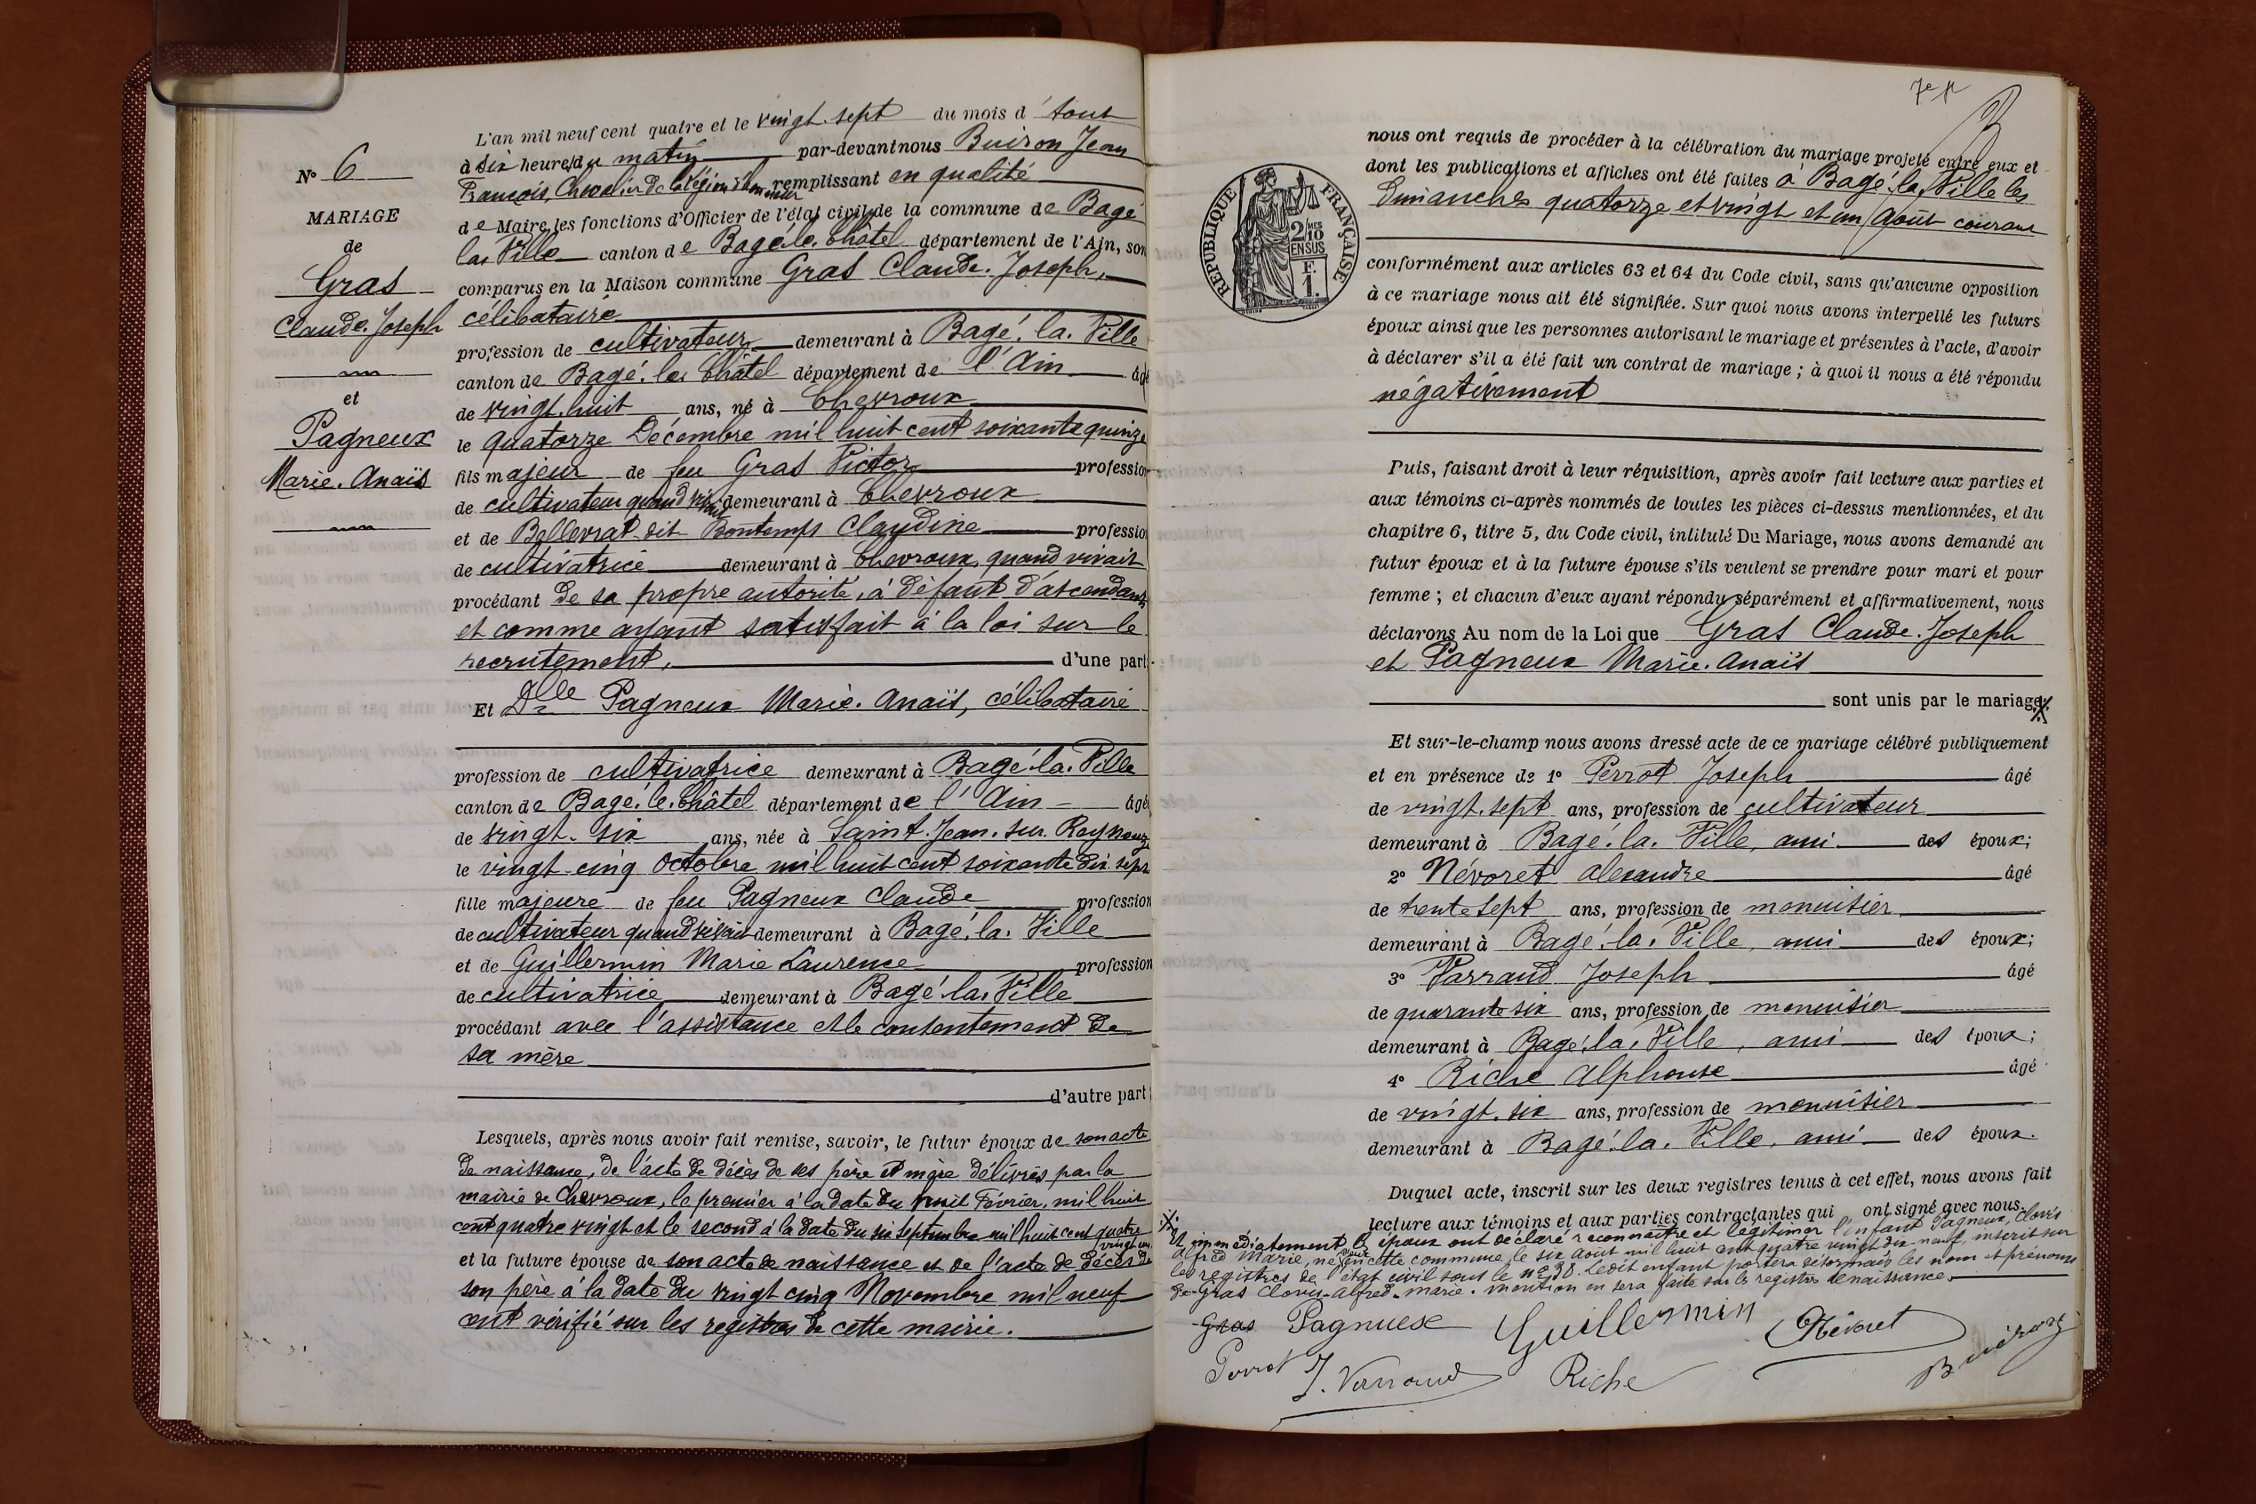 L'an mil neuf cent quatre et le vingt-sept du mois d'Aout
à dix heures du matin par-devant nous Buiron Jean
François, Chevalier de la Légion d'honneur remplissant en qualité
de Maire les fonctions d'Officier de l'état civil de la commune de Bagé
la Ville canton de Bagé-le-Châtel département de l'Ain, son
comparus en la Maison commune Gras Claude-Joseph,
célibataire
profession de cultivateur demeurant à Bagé-la-Ville
canton de Bagé-le-Châtel département de l'Ain âgé
de vingt-huit ans, né à Chevroux
le quatorze Décembre mil huit cent soixante quinze
fils majeur de feu Gras Victor profession
de cultivateur quand vivait demeurant à Chevroux
et de Bellevrat dit Bontemps Claudine profession
de cultivatrice demeurant à Chevroux, quand vivait
procédant de sa propre autorité, à défaut d'ascendants
et comme ayant satisfait à la loi sur le
recrutement, d'une part;
Et Dlle Pagneux Marie-Anaïs, célibataire
profession de cultivatrice demeurant à Bagé-la-Ville
canton de Bagé-le-Châtel département de l'Ain âgé
de vingt-six ans, née à Saint-Jean-sur-Reyssouze
le vingt-cinq Octobre mil huit cent soixante dix-sept
fille majeure de feu Pagneux Claude profession
de cultivateur quand vivait demeurant à Bagé-la-Ville
et de Guillermin Marie Laurence profession
de cultivatrice demeurant à Bagé-la-Ville
procédant avec l'assistance et le consentement de
sa mère
d'autre part;
Lesquels, après nous avoir fait remise, savoir, le futur époux de son acte
de naissance, de l'acte de décès de ses père et mère délivrés par la
mairie de Chevroux, le premier à la date du huit Février, mil huit
cent quatre vingt et le second à la date du six septembre mil huit cent quatre
vingt un
et la future épouse de son acte de naissance et de l'acte de décès de
son père à la date du vingt cinq Novembre mil neuf
cent vérifié sur les registres de cette mairie.
N° 6
MARIAGE
de
Gras
Claude-Joseph
et
Pagneux
Marie-Anaïs
7e
nous ont requis de procéder à la célébration du mariage projeté entre eux et
dont les publications et affiches ont été faites à Bagé-la-Ville les
Dimanches quatorze et vingt et un Août courant
RÉPUBLIQUE FRANÇAISE
2/10
MES
EN SUS
F.
1.
conformément aux articles 63 et 64 du Code civil, sans qu'aucune opposition
à ce mariage nous ait été signifiée. Sur quoi nous avons interpellé les futurs
époux ainsi que les personnes autorisant le mariage et présentes à l'acte, d'avoir
à déclarer s'il a été fait un contrat de mariage; à quoi il nous a été répondu
négativement
Puis, faisant droit à leur réquisition, après avoir fait lecture aux parties et
aux témoins ci-après nommés de toutes les pièces ci-dessus mentionnées, et du
chapitre 6, titre 5, du Code civil, intitulé Du Mariage, nous avons demandé au
futur époux et à la future épouse s'ils veulent se prendre pour mari et pour
femme; et chacun d'eux ayant répondu séparément et affirmativement, nous
déclarons Au nom de la Loi que Gras Claude-Joseph
et Pagneux Marie-Anaïs
sont unis par le mariage.
Et sur-le-champ nous avons dressé acte de ce mariage célébré publiquement
et en présence de 1° Perrot Joseph âgé
de vingt-sept ans, profession de cultivateur
demeurant à Bagé-la-Ville, ami des époux;
2° Névoret Alexandre âgé
de trente sept ans, profession de menuisier
demeurant à Bagé-la-Ville, ami des époux;
3° Varraud Joseph âgé
de quarante six ans, profession de menuisier
demeurant à Bagé-la-Ville, ami des époux;
4° Riche Alphonse âgé
de vingt-six ans, profession de menuisier
demeurant à Bagé-la-Ville, ami des époux.
Duquel acte, inscrit sur les deux registres tenus à cet effet, nous avons fait
lecture aux témoins et aux parties contractantes qui ont signé avec nous.
Immédiatement les époux ont déclaré reconnaître et légitimer l'enfant Pagneux, Clovis
Alfred Marie, né en cette commune le six Aout mil huit cent quatre vingt dix-neuf inscrit sur
les registres de l'état civil sous le n° 38. Ledit enfant portera désormais les nom et prénoms
de Gras Clovis-Alfred-Marie. Mention en sera faite sur le registre de naissance.
Gras Pagnuex Guillermin Névoret
Perrot J. Varraud Riche Buiron